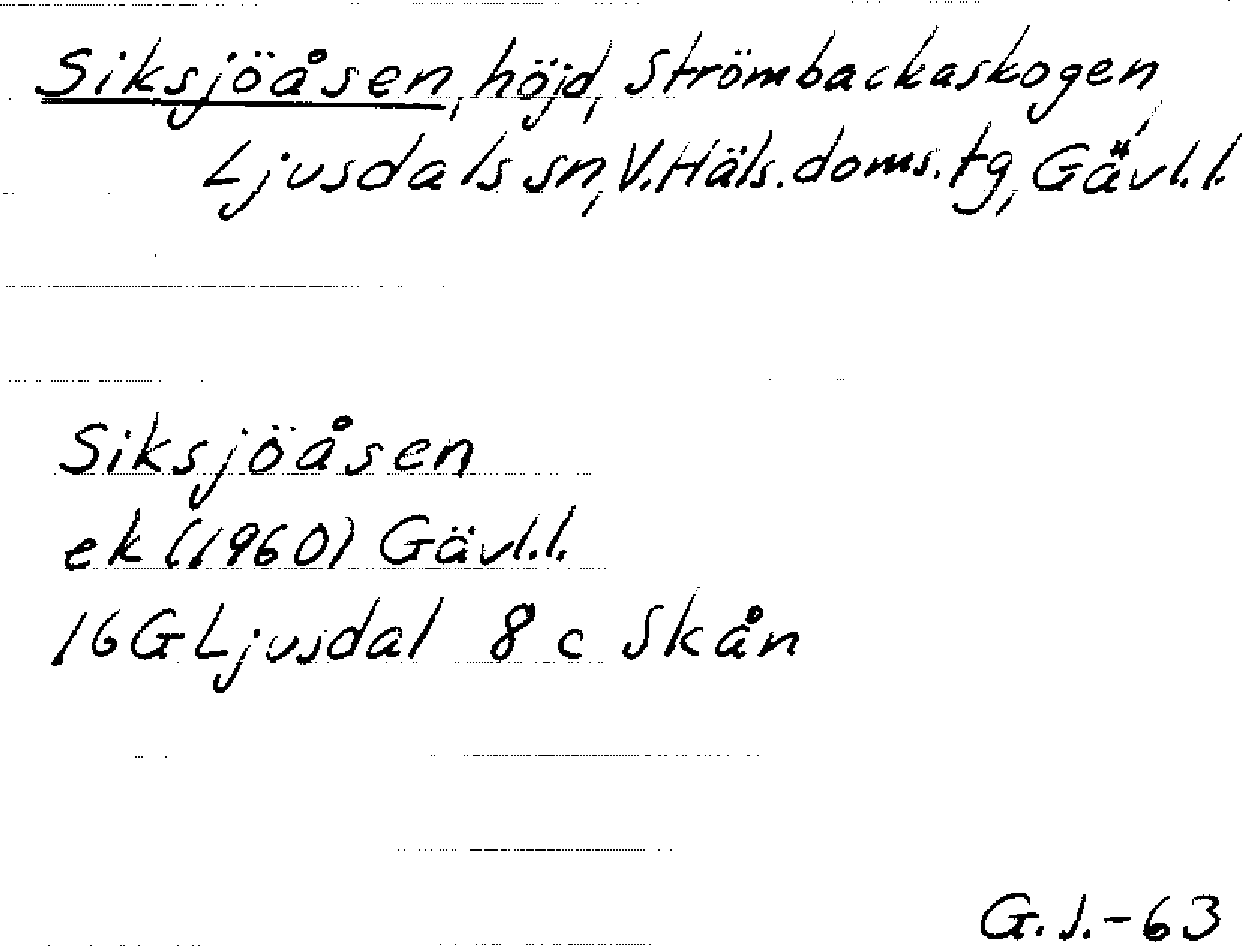 Siksjöåsen, höjd, Strömbackaskogen,
Ljusdals sn, V. Häls. doms. tg, Gävl.l.
Siksjöåsen
ek (1960) Gävl.l.
16G Ljusdal 8 c Skån
G.J.-63